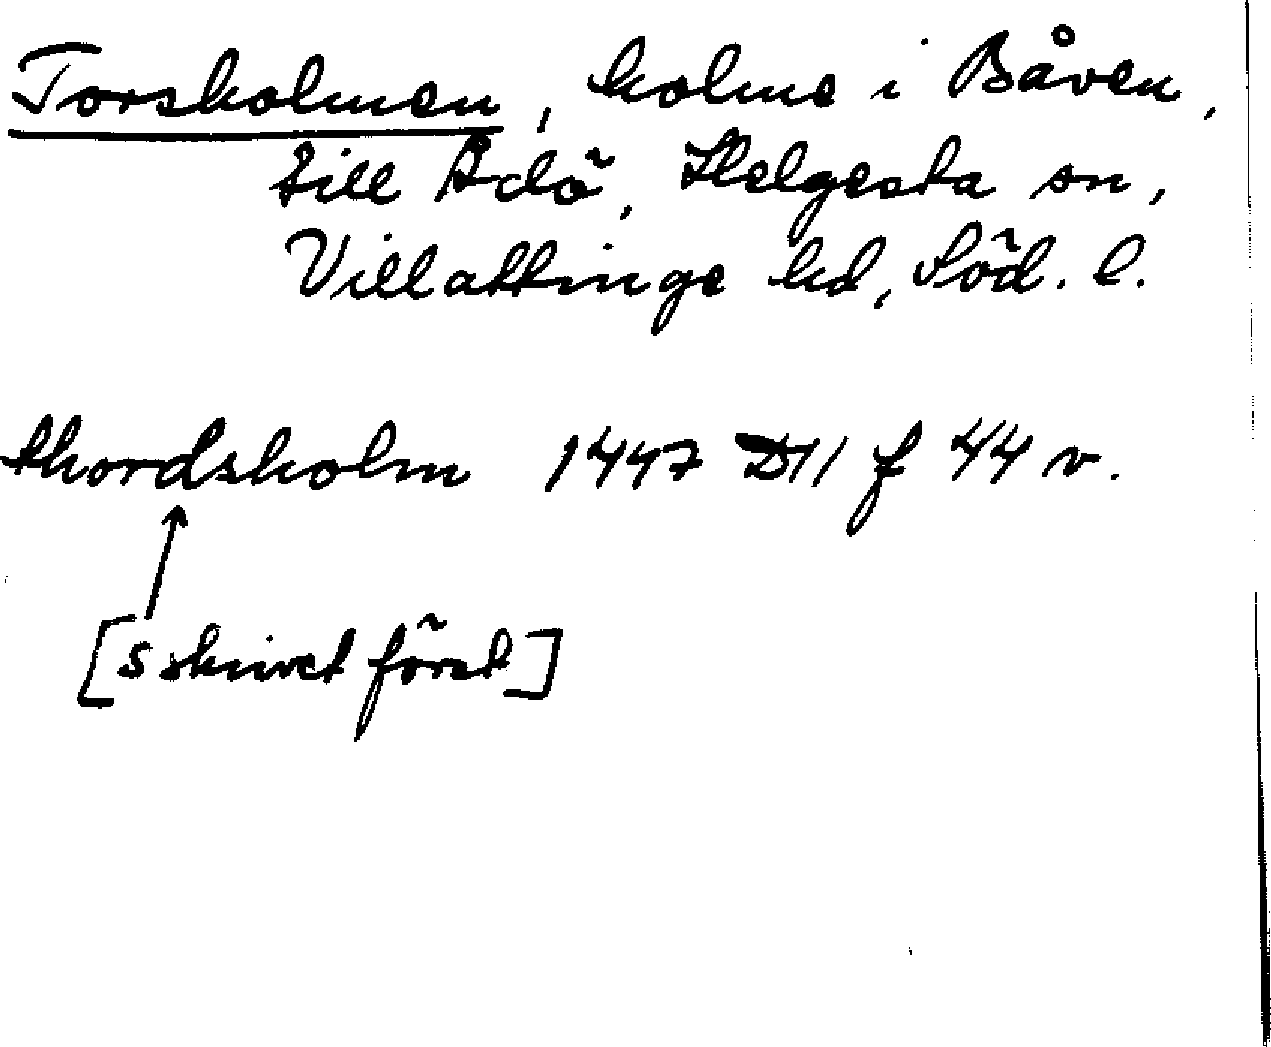 Torsholmen, holme i Båven,
till Ådö, Helgesta sn,
Villattinge hd, Söd. l.
thordsholm 1447 D11 f 44 v.
[s skrivet först]